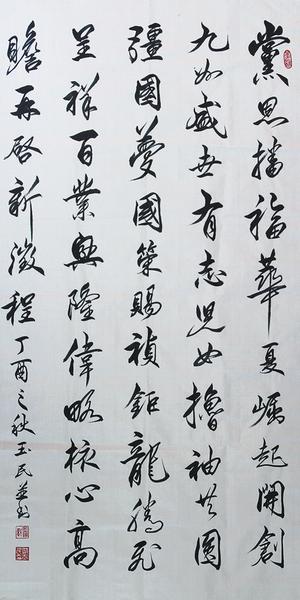 黨恩播福華夏崛起開創
九州盛世有志兒女擼袖共圓
疆國夢國策賜禎鉅龍騰飛
呈祥百業興隆偉略核心高
瞻再啓新徵程丁酉之秋玉民並書